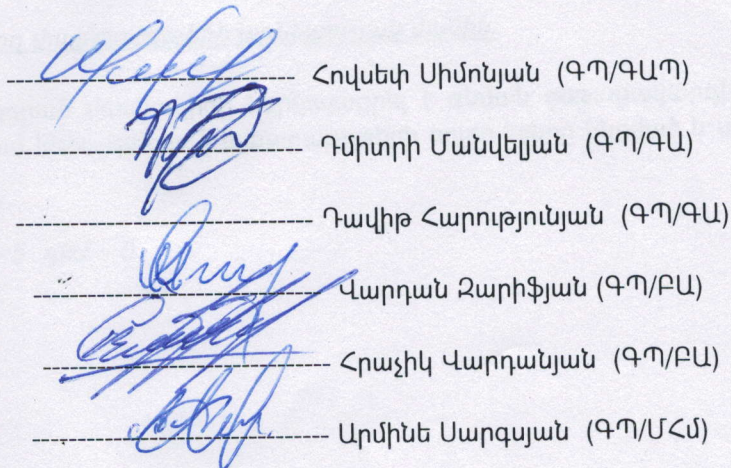 Հովսեփ Սիմոնյան (ԳՊ/ԳԱՊ)
Դմիտրի Մանվելյան (ԳՊ/ԳԱ)
Դավիթ Հարությունյան (ԳՊ/ԳԱ)
Վարդան Զարիֆյան (ԳՊ/ԲԱ)
Հրաչիկ Վարդանյան (ԳՊ/ԲԱ)
Արմինե Սարգսյան (ԳՊ/ՄՀմ)